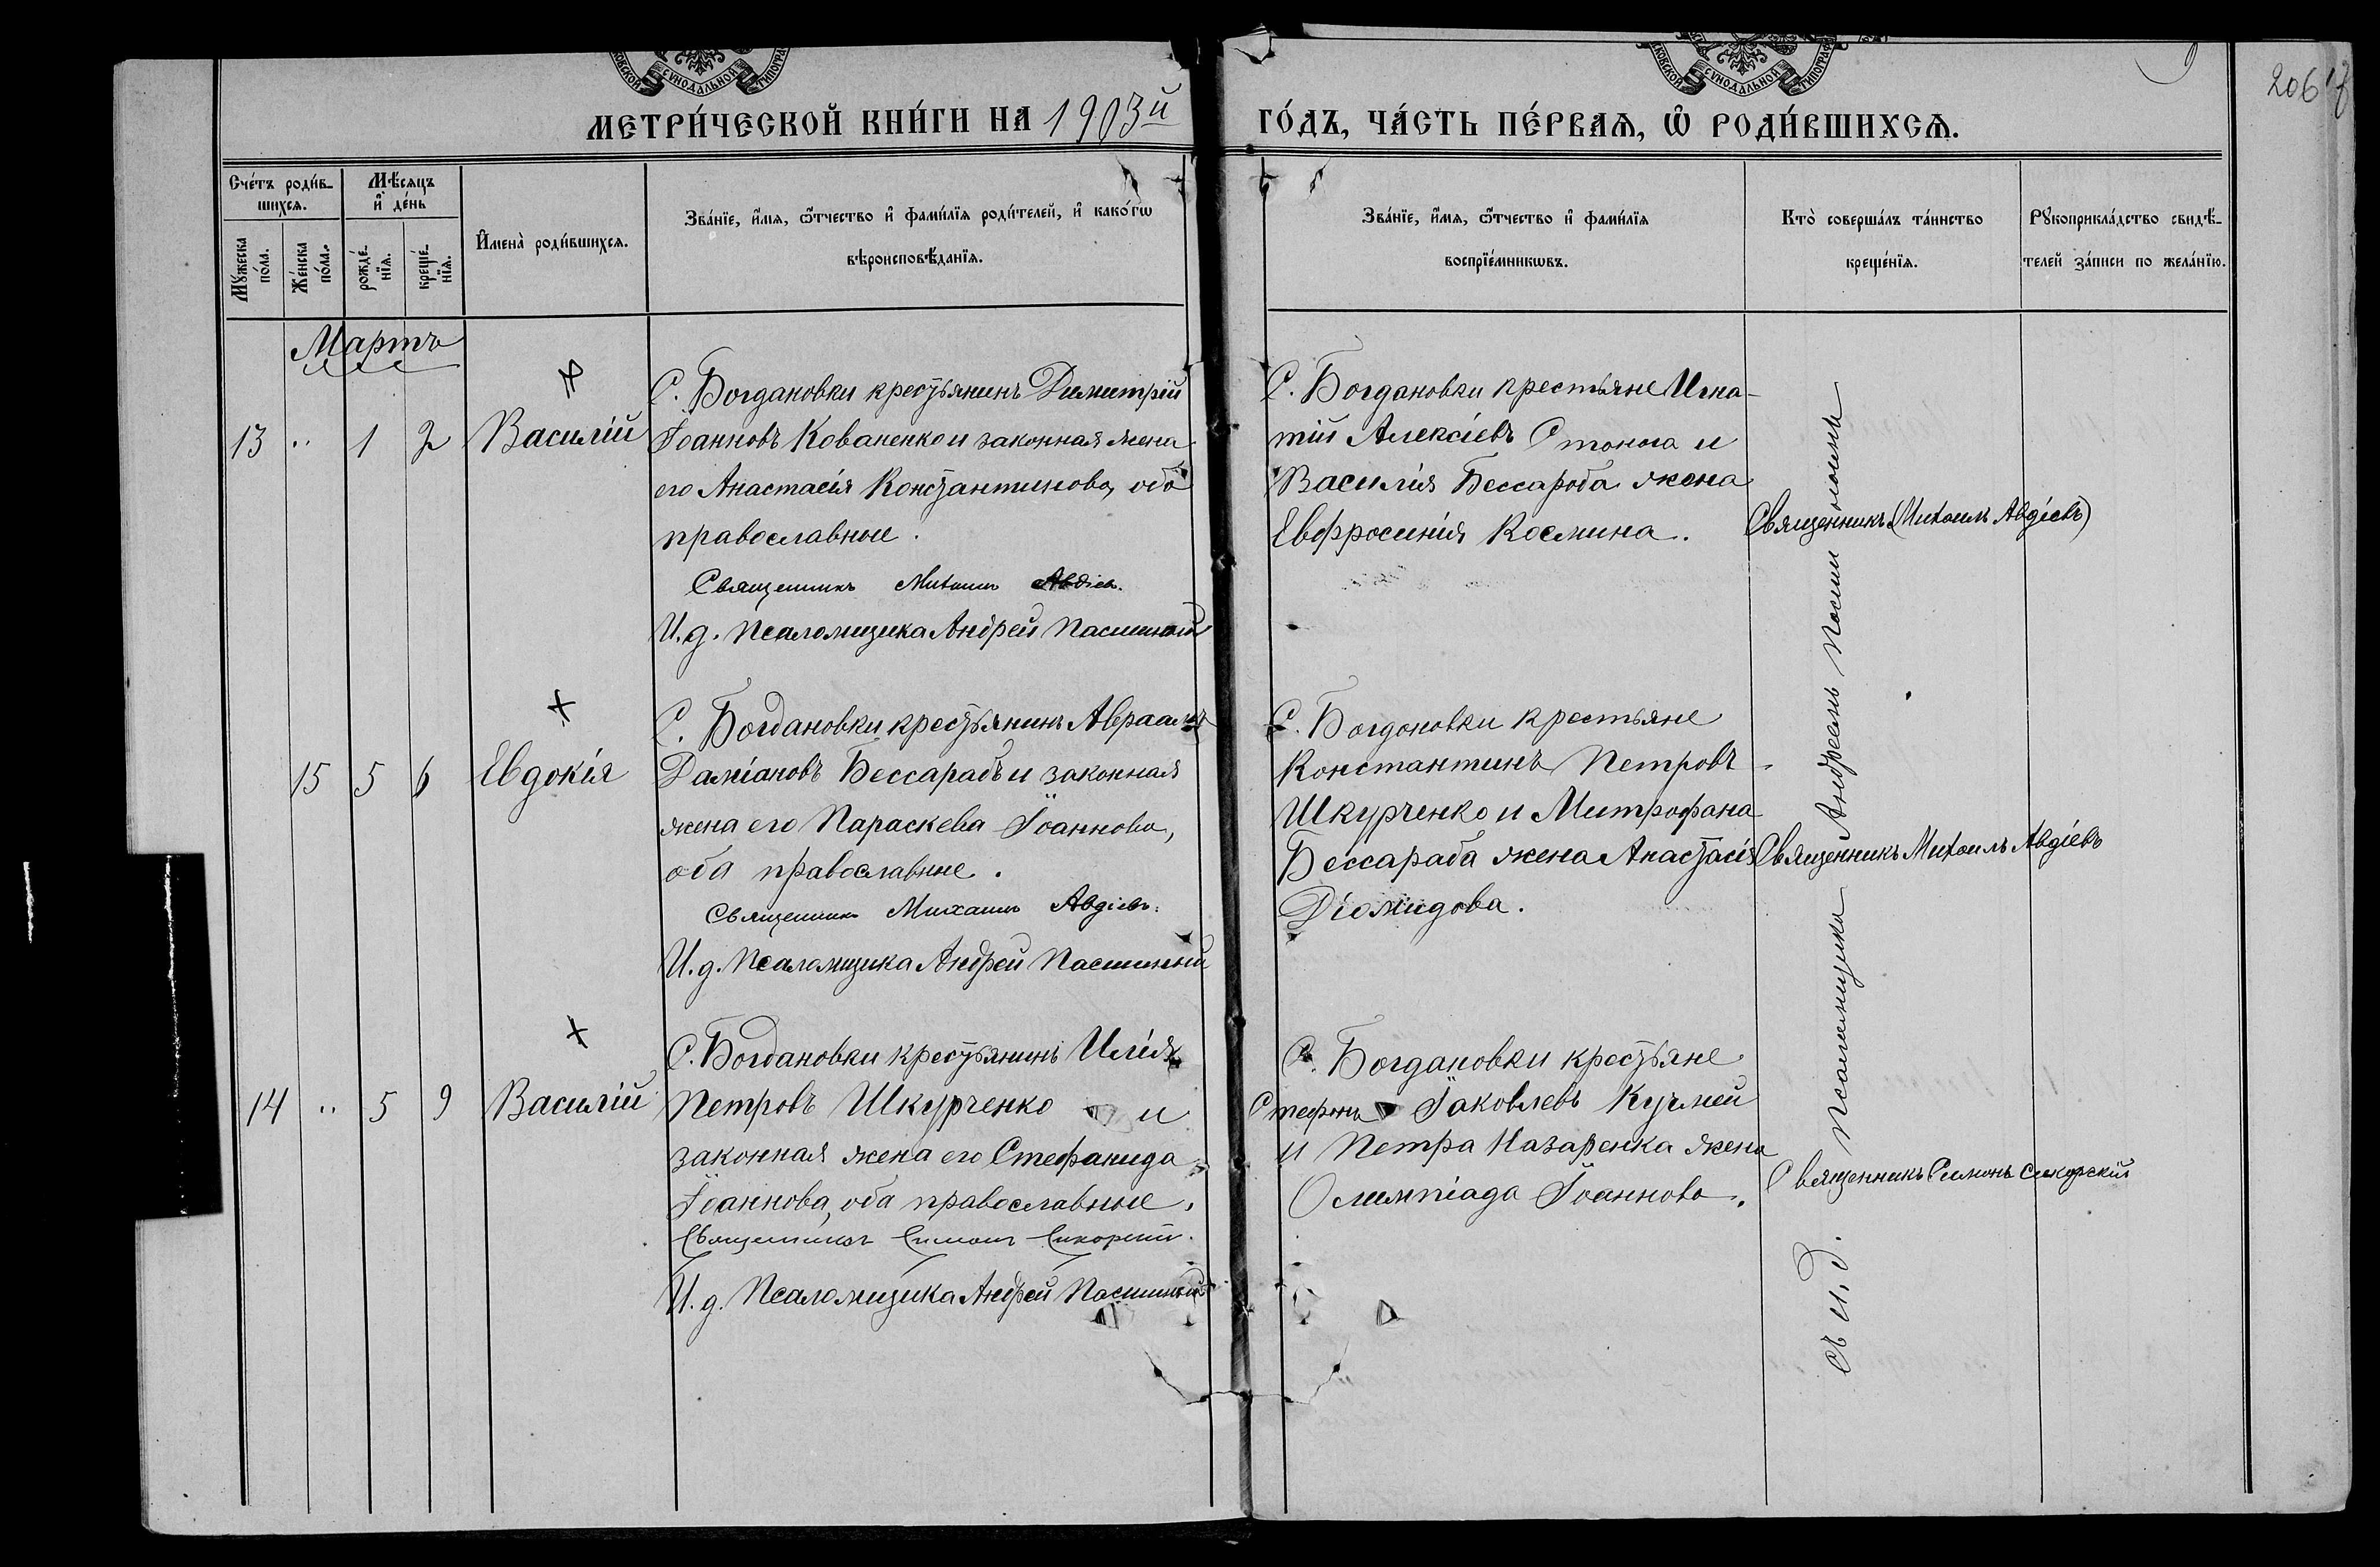 МЕТРИ́ЧЕСКОЙ КНИ́ГИ НА 1903й
ГО́ДЪ, ЧА́СТЬ ПЕ́РВАѦ, Ѿ РОДИ́ВШИХСѦ.
Сче́тъ роди́в-
шихсѧ.
Мѣ́сѧцъ
и҆ де́нь
Мꙋ́жеска
по́ла.
Же́нска
по́ла.
рожде́-
нїѧ.
креще́-
нїѧ.
И҆мена̀ роди́вшихсѧ.
Зва́нїе, и҆́мѧ, ѻ҆́тчество и҆ фами́лїѧ роди́телей, и҆ како́гѡ
вѣроисповѣ́данїѧ.
Зва́нїе, и҆́мѧ, ѻ҆́тчество и҆ фами́лїѧ
воспрїе́мникѡвъ.
Кто̀ соверша́лъ та́инство
креще́нїѧ.
Рꙋкоприкла́дство свидѣ́-
телей за́писи по жела́нїю.
Мартъ
13 " 1 2 Василій
С. Богдановки крестьянинъ Димитрій
Іоанновъ Коваленко и законная жена
его Анастасія Константинова, оба
православные.
Священникъ Михаилъ Авдіев.
И. д. Псаломщика Андрей Пасишный
С. Богдановки крестьяне Игна-
тій Алексіевъ Стонога и
Василія Бессараба жена
Евфросинія Космина.
Священникъ (Михаилъ Авдіевъ)
15 5 6 Евдокія
С. Богдановки крестьянинъ Авраамъ
Даміановъ Бессарабъ и законная
жена его Параскева Іоаннова,
оба православные.
Священникъ Михаилъ Авдіевъ.
И. д. Псаломщика Андрей Пасишный
С. Богдановки крестьяне
Константинъ Петровъ
Шкурченко и Митрофана
Бессараба жена Анастасія
Діомидова.
Священникъ Михаилъ Авдіевъ
14 " 5 9 Василій
С. Богдановки крестьянинъ Илія
Петровъ Шкурченко и
законная жена его Стефанида
Іоаннова, оба православные.
Священникъ Симонъ Сикорскій.
И. д. Псаломщика Андрей Пасишный
С. Богдановки крестьяне
Стефанъ Іаковлевъ Кузмей
и Петра Назаренка жена
Олимпіада Іоаннова.
Священникъ Симонъ Сикорскій
съ и. д. псаломщика Андреемъ